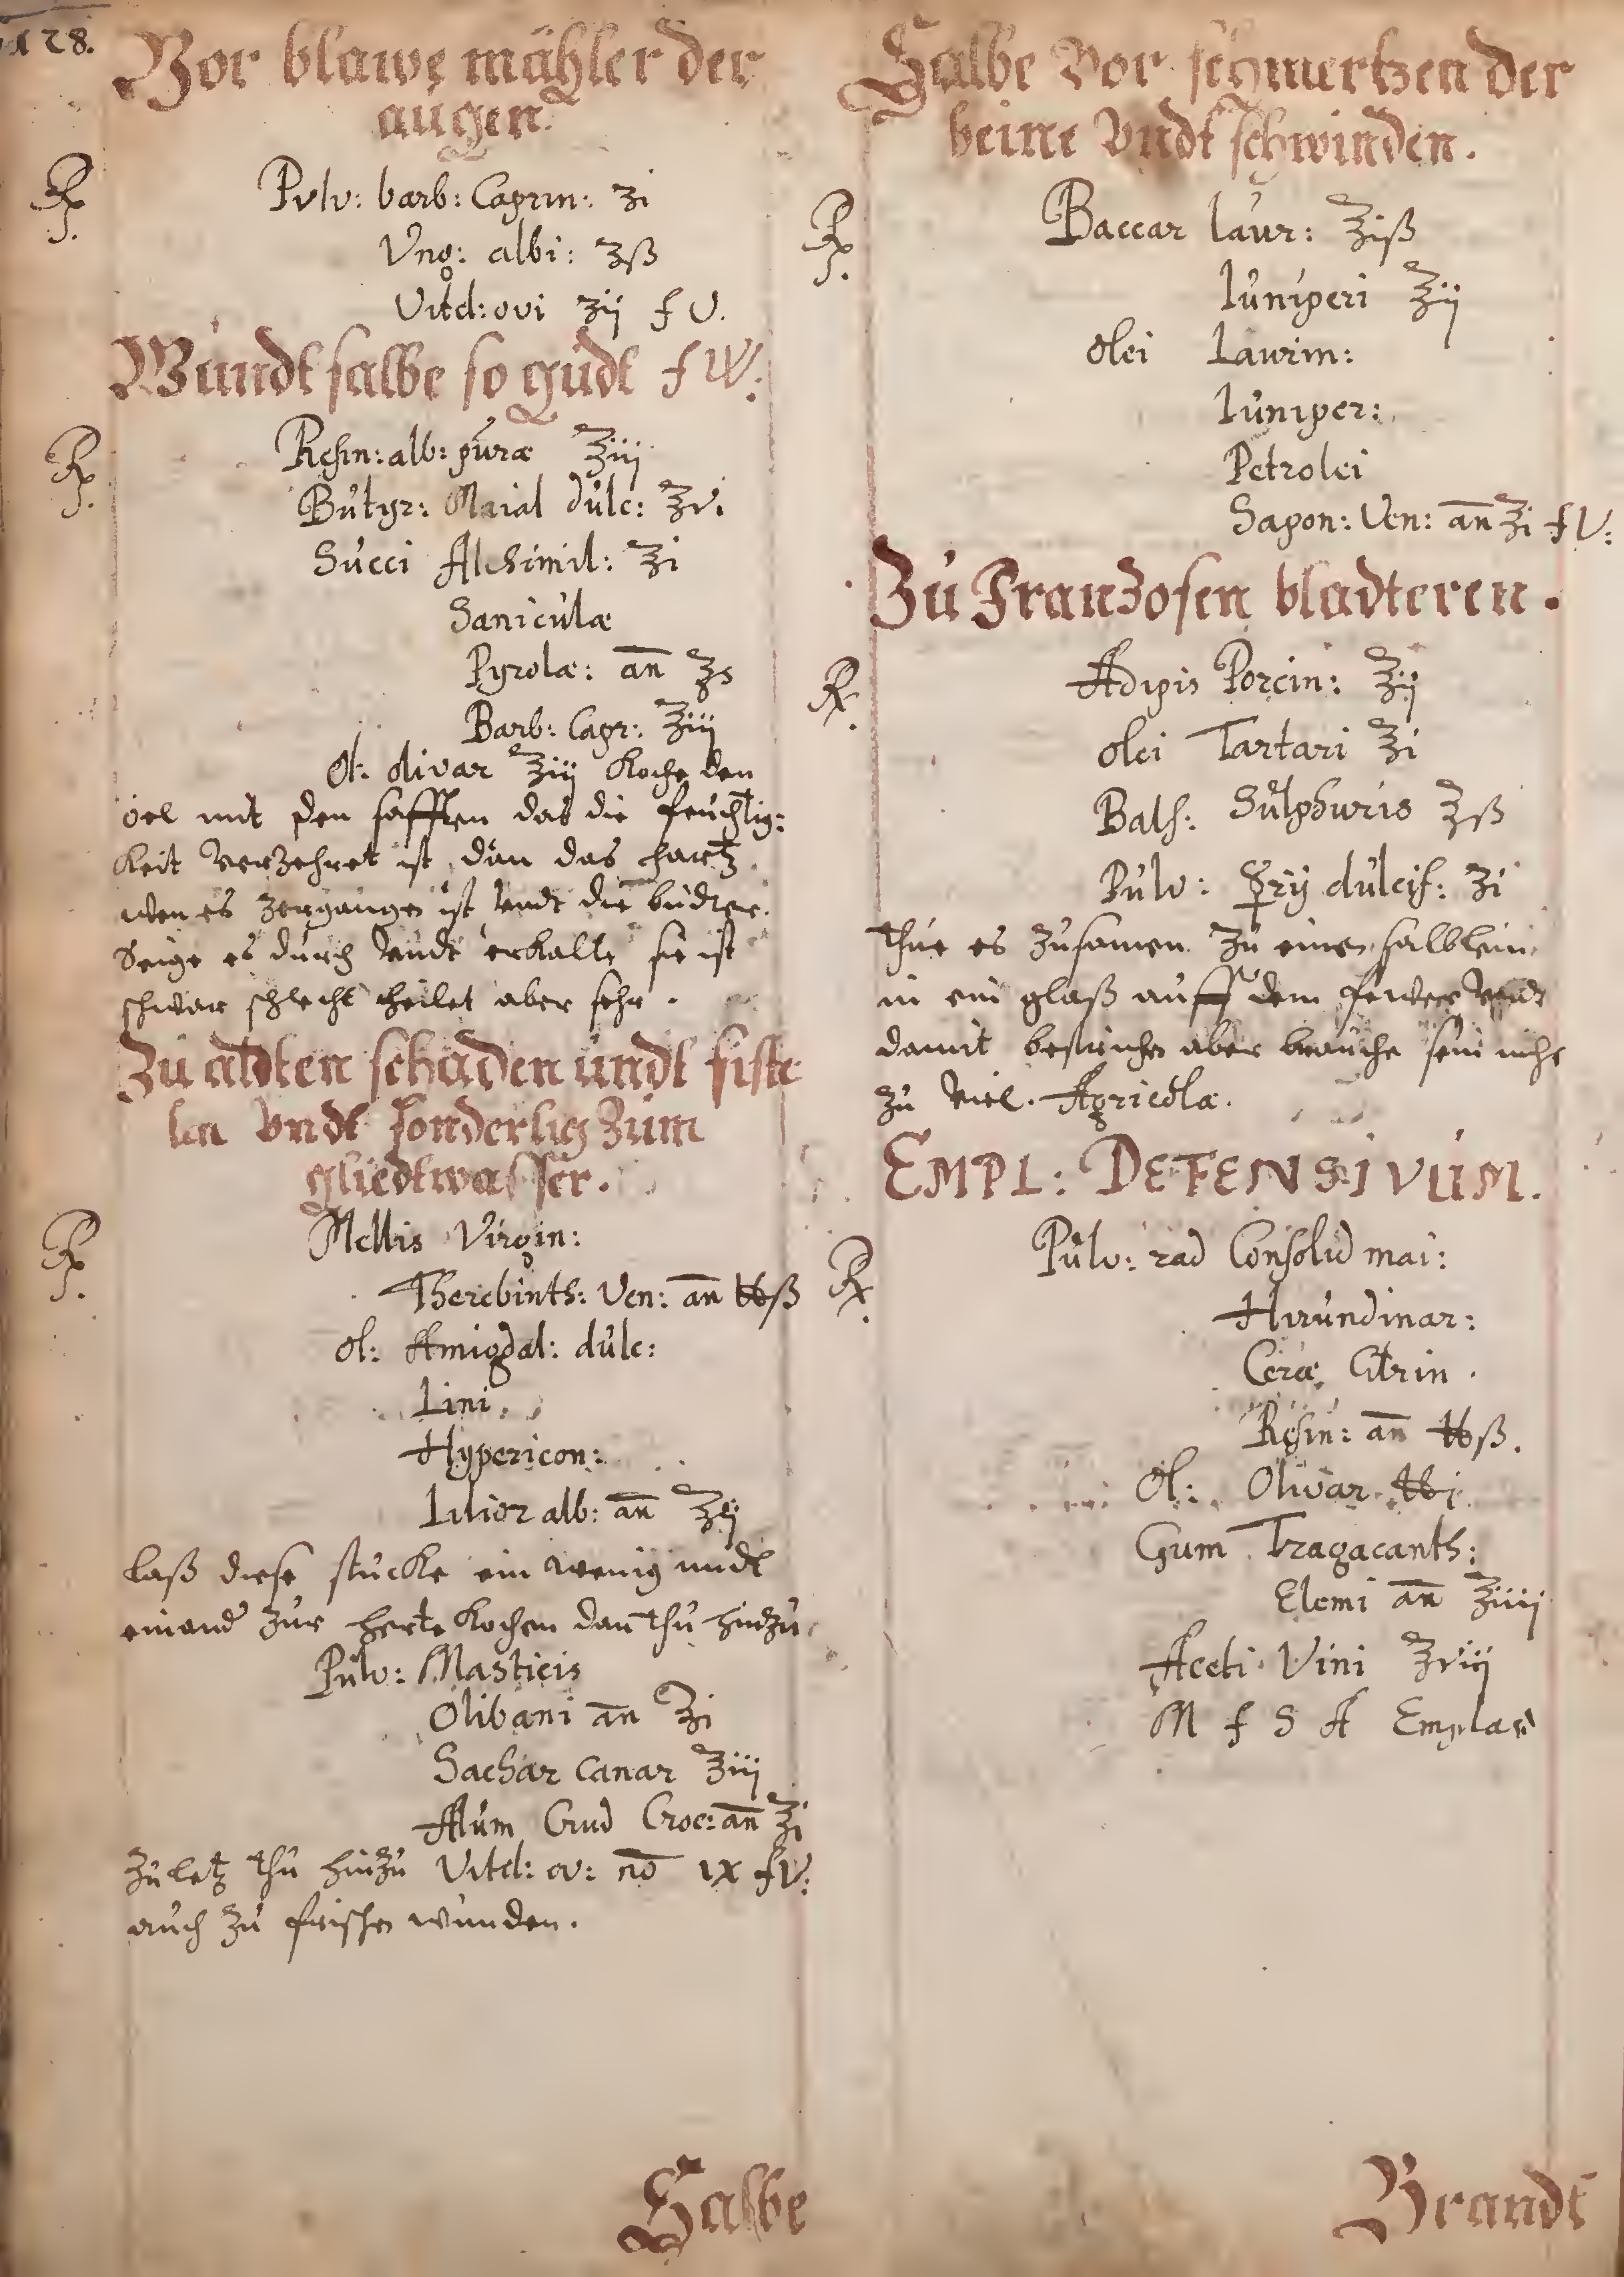 128.
Vor blawe mähler der
augen.
Rp.
Pulv: barb: Caprin: ʒi
Ung: albi: ʒß
Vitel: ovi ʒij f V.
Wundt salbe so gudt f W:
Rp.
Resin: alb: puræ ℥iij
Butyr: Maial dulc: ℥v.
Succi Alchimil: ℥i
Saniculæ
Pyrolæ: an̄ ℥s
Barb: Capr: ℥iij
Ol: olivar ℥iij Koche den
öel mit den safften das die feuchtig:
keit verzehret ist, dan das hartz
wen es zergangen ist undt die budter.
Seige es durch undt erkalte sie ist
schwar schlecht heilet aber sehr.
Zu aldten schaden undt fiste
len undt sonderlig zum
gliedtwasser.
Rp.
Mellis Virgin:
Therebinth: Ven: an̄ ℔ß
Ol: Amigdal: dulc:
Lini.
Hypericon:
Lilior alb: an̄ ℥ij
laß diese stucke ein wenig undt
einand zur herte kochen dan thu hinzu
Pulv: Masticis
Olibani an̄ ℥i
Sachar canar ℥iij
Alum Crud Croc: an̄ ℥i
Zu letz thu hinzu Vitel: ov: no IX f V:
auch zu frischen wunden.
Salbe
Salbe Vor schmertzen der
beine Undt schwinden.
Rp.
Baccar laur: ℥iß
Iuniperi ℥ij
Olei Laurin:
Iuniper:
Petrolei
Sapon: Ven: an̄ ℥i f V:
Zu Franzosen bladteren.
Rx.
Adipis Porcin: ℥ij
Olei Tartari ℥i
Bals: Sulphuris ʒß
Pulv: ☿rij dulcif: ʒi
thue es zusamen zu einen salblein
in ein glaß auff dem fewer undt
damit bestrichen aber brauche sein nicht
zu viel. Agricolæ.
EMPL: DEFENSIVUM.
Rx.
Pulv: rad Consolid mai:
Hirundinar:
Ceræ Citrin.
Resin: an̄ ℔ß.
Ol: Olivar ℔j.
Gum Tragacanth:
Elemi an̄ ℥iiij
Aceti Vini ℥viij
M f S A Emplas
Brandt